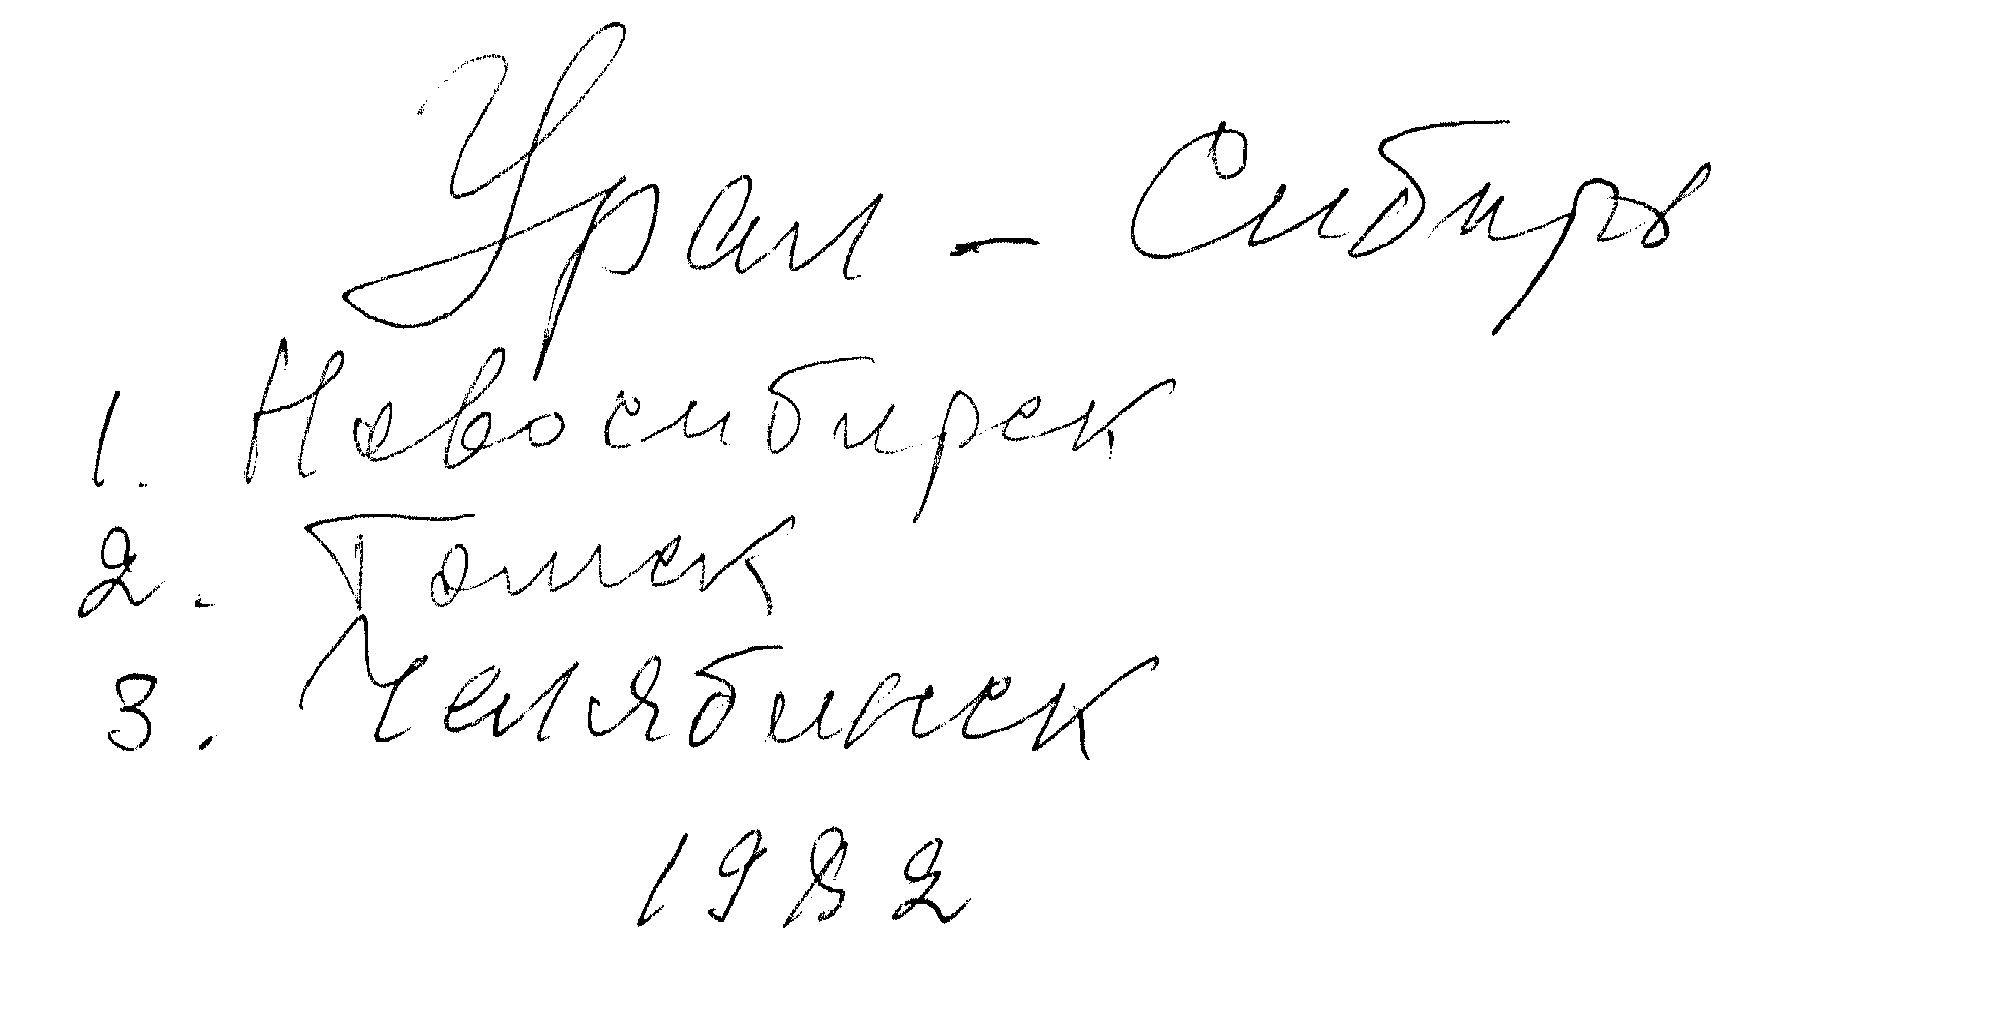 Урал - Сибирь
1. Новосибирск
2. Томск
3. Челябинск
1982